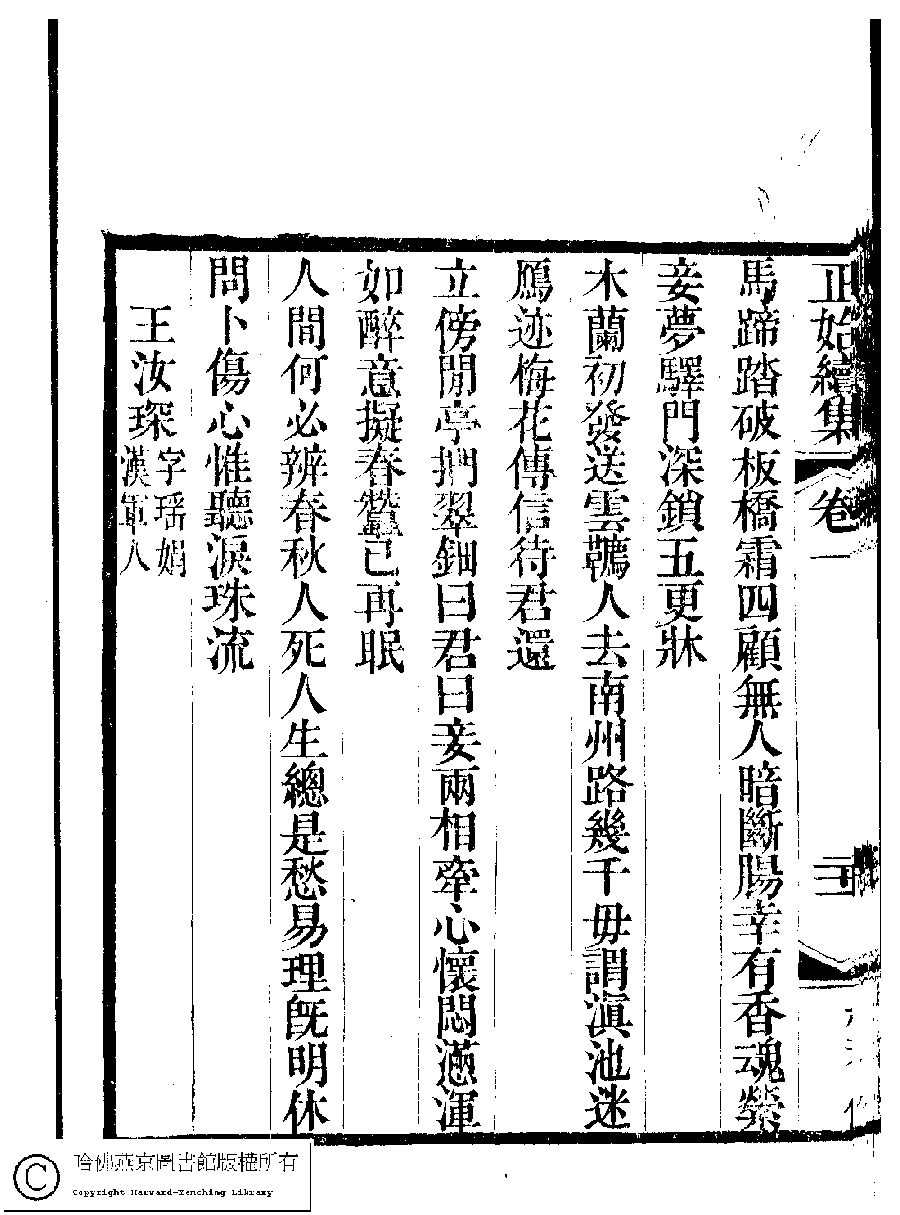 正始續集 卷一
馬蹄踏破板橋霜四顧無人暗斷腸幸有香魂縈
妾夢驛門深鎖五更牀
木蘭初發送雲鷁人去南州路幾千毋謂滇池迷
鴈迹梅花傳信待君還
立傍閒亭捫翠鈿曰君曰妾兩相牽心懷悶懣渾
如醉意擬春蠶已再眠
人間何必辨春秋人死人生總是愁易理旣明休
問卜傷心惟聽淚珠流
王汝琛 字瑶娟 漢軍人
哈佛燕京圖書館版權所有
Copyright Harvard-Yenching Library